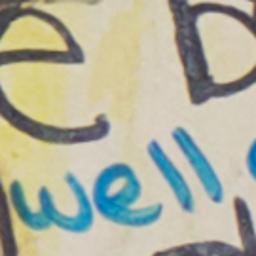 e b
well